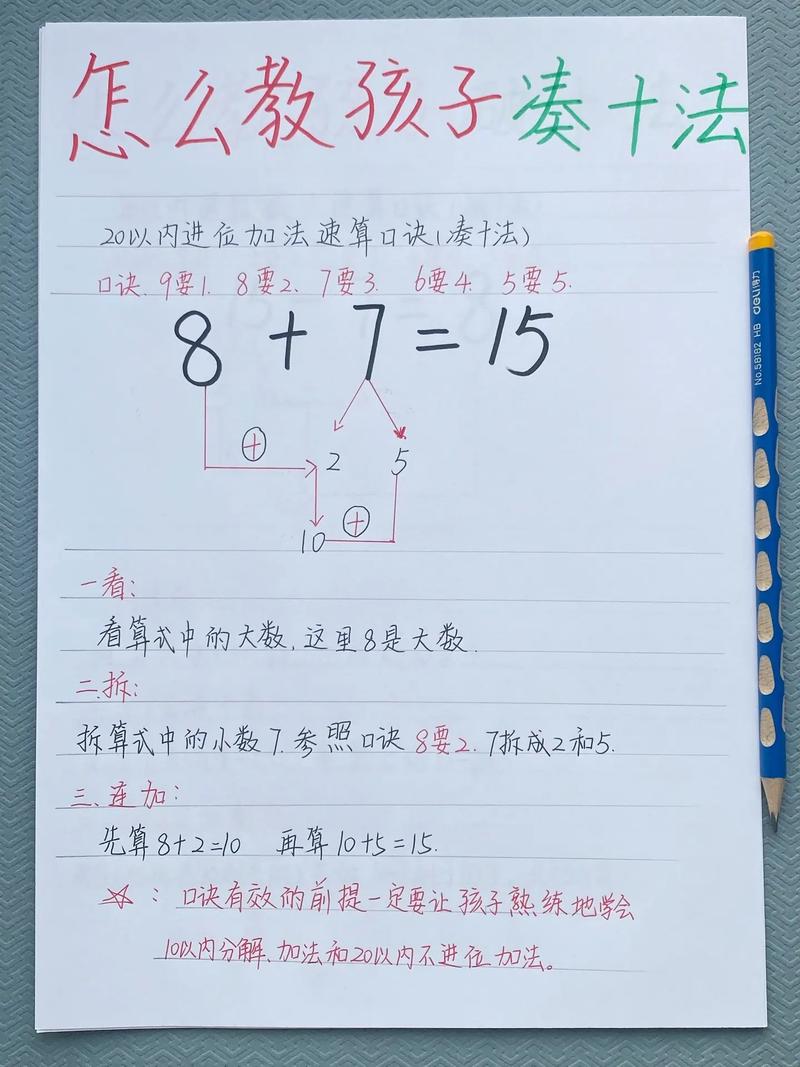 怎么教孩子凑十法
20以内进位加法速算口诀(凑十法)
口诀.9要1. 8要2. 7要3. 6要4. 5要5.
8+7=15
+
2 5
+
10
一看:
看算式中的大数.这里8是大数.
二.拆:
拆算式中的小数7.参照口诀8要2.7拆成2和5.
三、连加:
先算8+2=10 再算10+5=15.
☆:口诀有效的前提一定要让孩子熟练地学会
10以内分解、加法和20以内不进位加法。
deli得力
No.58182 HB